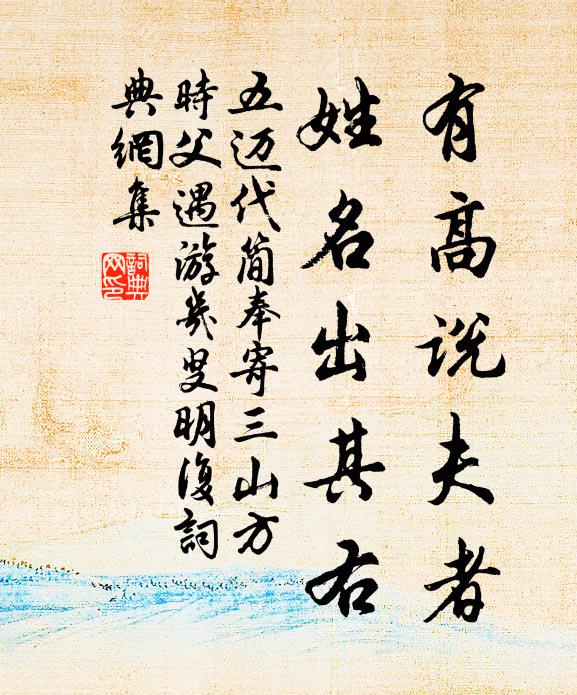 有高说夫者
姓名出其右
五迈代简奉寄三山方
時父遇游幾叟明復詞
典網集
詞典網印